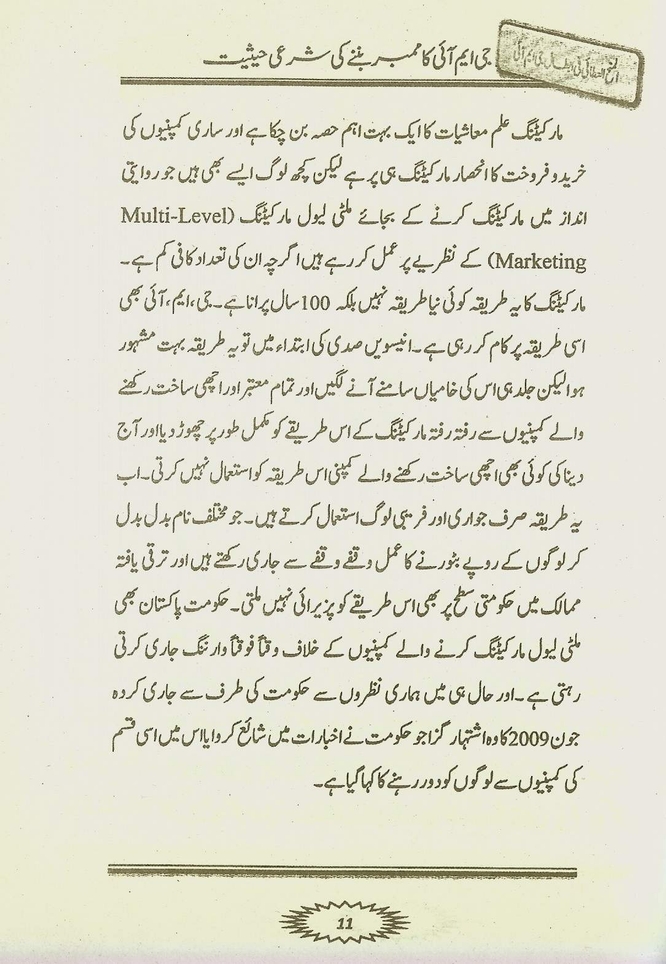 جی ایم آئی کا ممبر بننے کی شرعی حیثیت
مارکیٹنگ علم معاشیات کا ایک بہت اہم حصہ بن چکا ہے اور ساری کمپنیوں کی
خرید و فروخت کا انحصار مارکیٹنگ ہی پر ہے لیکن کچھ لوگ ایسے بھی ہیں جو روایتی
انداز میں مارکیٹنگ کرنے کے بجائے ملٹی لیول مارکیٹنگ (Multi-Level
Marketing) کے نظریے پر عمل کر رہے ہیں اگرچہ ان کی تعداد کافی کم ہے۔
مارکیٹنگ کا یہ طریقہ کوئی نیا طریقہ نہیں بلکہ 100 سال پرانا ہے۔ جی، ایم، آئی بھی
اسی طریقہ پر کام کر رہی ہے۔ انیسویں صدی کی ابتداء میں تو یہ طریقہ بہت مشہور
ہوا لیکن جلد ہی اس کی خامیاں سامنے آنے لگیں اور تمام معتبر اور اچھی ساخت رکھنے
والے کمپنیوں سے رفتہ رفتہ مارکیٹنگ کے اس طریقے کو مکمل طور پر چھوڑ دیا اور آج
دینا کی کوئی بھی اچھی ساخت رکھنے والے کمپنی اس طریقہ کو استعمال نہیں کرتی۔ اب
یہ طریقہ صرف جواری اور فریبی لوگ استعمال کرتے ہیں۔ جو مختلف نام بدل بدل
کر لوگوں کے روپے بٹورنے کا عمل وقفے وقفے سے جاری رکھتے ہیں اور ترقی یافتہ
ممالک میں حکومتی سطح پر بھی اس طریقے کو پزیرائی نہیں ملتی۔ حکومت پاکستان بھی
ملٹی لیول مارکیٹنگ کرنے والے کمپنیوں کے خلاف وقتاً فوقتاً وارننگ جاری کرتی
رہتی ہے۔ اور حال ہی میں ہماری نظروں سے حکومت کی طرف سے جاری کردہ
جون 2009 کا وہ اشتہار گزا جو حکومت نے اخبارات میں شائع کروایا اس میں اسی قسم
کی کمپنیوں سے لوگوں کو دور رہنے کا کہا گیا ہے۔
11